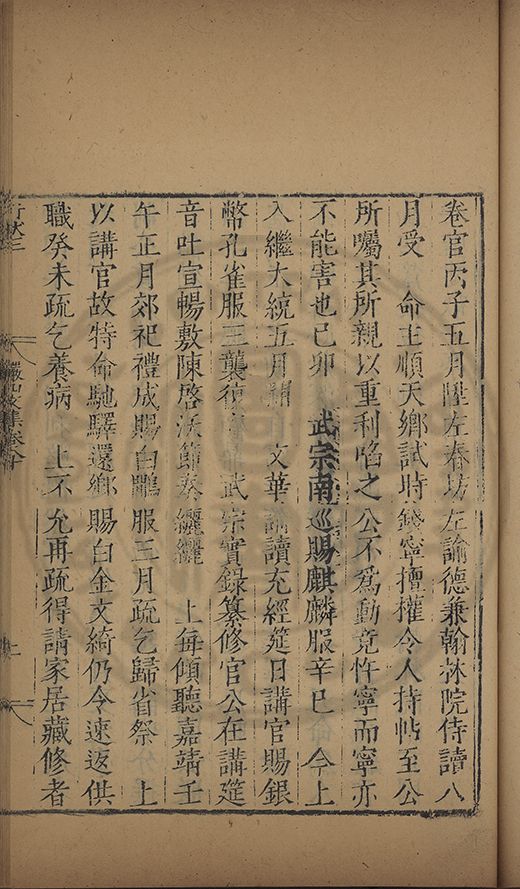 卷官丙子五月陞左春坊左諭德兼翰林院侍讀八
月受 命主順天鄉試時錢寧擅權令人持帖至公
所囑其所親以重利啗之公不爲動竟忤寧而寧亦
不能害也己卯 武宗南巡賜麒麟服辛巳 今上
入繼大統五月 文華 讀充經筵日講官賜銀
幣孔雀服三襲復 武宗實錄纂修官公在講筵
音吐宣暢敷陳啓沃節奏纚纚 上每傾聽嘉靖壬
午正月郊祀禮成賜白鷴服三月疏乞歸省祭 上
以講官故特命馳驛還鄉賜白金文綺仍令速返供
職癸未疏乞養病 上不允再疏得請家居藏修者
行狀三